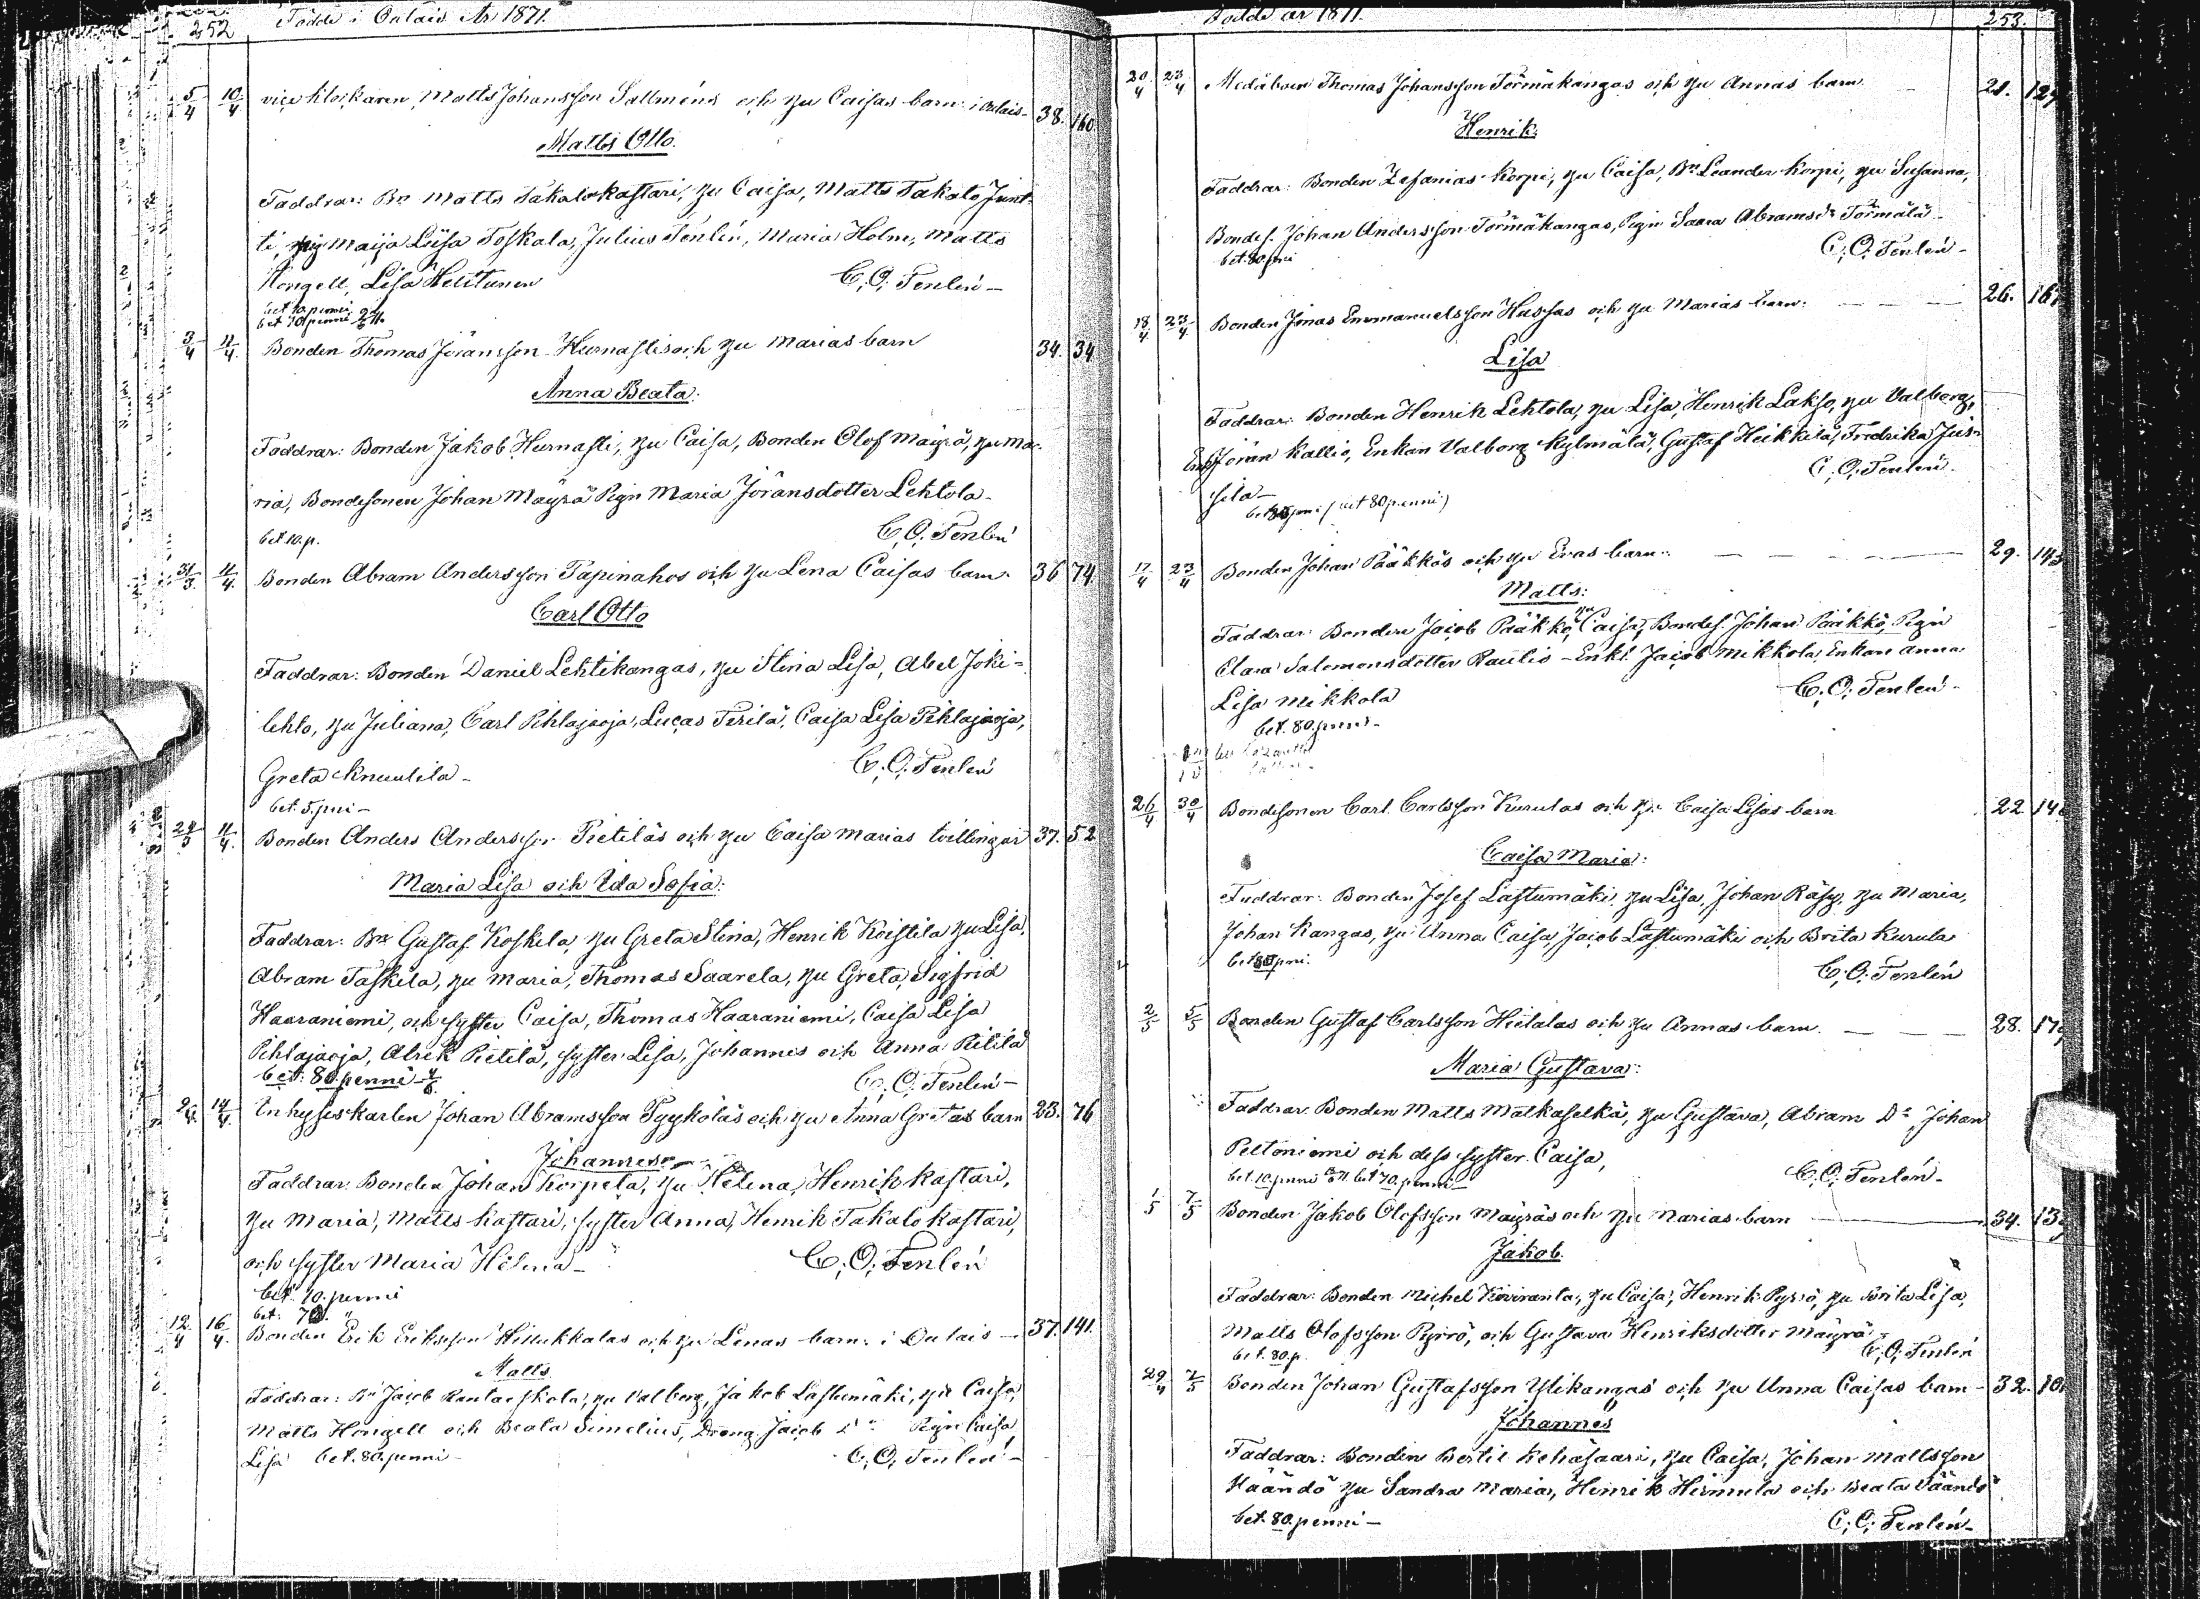 252 Födde i Oulais År 1871.
5/4 10/4 vice klockaren Matts Johansson Sallméns och hu Caisas barn: i Oulais- 38. 160
Matts Otto.
Faddrar: Bn Matts Takalokastari, hu Caisa, Matts Takalo Junt-
ti, pig Maija Liisa Toskala, Julius Tenlén, Maria Holm, Matts
Hongell, Lisa Heliturien C. O. Tenlén -
bet 10 penni
bet 70 penni
3/4 11/4 Bonden Thomas Jöransson Hurnaslis och hu Marias barn 34. 34
Anna Beata:
Faddrar: Bonden Jakob Hurnasti, hu Caisa, Bonden Olof Mäyrä, hu Ma-
ria, Bondesonen Johan Mäyrä Pign Maria Jöransdotter Lehtola -
bet. 10. p. C. O. Tenlén
31/3 11/4 Bonden Abram Andersson Tapinahos och hu Lena Caisas barn. 36 74.
Carl Otto
Faddrar: Bonden Daniel Lehtikangas, hu Stina Lisa, Abel Joki=
lehto, hu Juliana, Carl Pihlajaoja, Lucas Perilä, Caisa Lisa Pihlajaoja,
Greta Knuutila - C. O. Tenlén
bet. 5. pni -
24/3 11/4 Bonden Anders Andersson Pietiläs och hu Caisa Marias tvillingar 37. 52
Maria Lisa och Ida Sofia:
Faddrar: Bn Gustaf Koskela, hu Greta Stina, Henrik Koistila hu Lisa,
Abram Taskila, hu Maria, Thomas Saarela, hu Greta, Sigfrid
Haaraniemi, och syster Caisa, Thomas Haaraniemi, Caisa Lisa
Pihlajaoja, Alrik Pietilä, syster Lisa, Johannes och Anna Pietilä
bet: 80. penni C. O. Tenlén -
14/4 Inhyseskarlen Johan Abramsson Pyykoläs och hu Anna Gretas barn 23. 76
Johannes
Faddrar. Bonden Johan Korpela, hu Helena, Henrik Kastari,
hu Maria, Matts Kastari, syster Anna, Henrik Takalokastari,
och syster Maria Helena - C. O. Tenlén
bet. 10. penni
bet. 70. "
12/4 16/4 Bonden Erik Eriksson Hillukkalas och hu Lenas barn: i Oulais - 37. 141.
Matts
Faddrar: Bn Jacob Rantaeskola, hu Valborg, Jakob Lastumäki, hu Caisa,
Matts Hongell och Beata Simelius, Dräng Jacob Do Pign Caisa
Lisa bet. 80. penni - C. O. Tenlén -
Födde år 1871. 253.
20/4 23/4 Mediäboen Thomas Johansson Törmäkangas och hu Annas barn 21. 127
Henrik:
Faddrar: Bonden Zefanias Korpi, hu Caisa, Bn Leander Korpi, hu Susanna,
Bondes. Johan Andersson Törmäkangas, Pign Saara Abramsdr Törmälä -
bet. 80 pni C. O. Tenlén -
18/4 23/4 Bonden Jonas Emmanuelsson Hussas och hu Marias barn: 26. 167
Lisa
Faddrar: Bonden Henrik Lehtola, hu Lisa, Henrik Lakso, hu Valborg,
Enkl Jöran Kallio, Enkan Valborg Kylmälä, Gustaf Heikkilä, Fredrika Jus-
sila - C. O. Tenlén.
(bet 80 penni)
17/4 23/4 Bonden Johan Pääkkös och hu Evas barn: 29. 143
Matts:
Faddrar: Bonden Jacob Pääkkö, hu Caisa, Bondes. Johan Pääkkö, Pign
Clara Salomonsdotter Raulio - Enkl. Jacob Mikkola, Enkan Anna
Lisa Mikkola C. O. Tenlén -
bet. 80. penni -
26/4 30/4 Bondesonen Carl Carlsson Kurulas och hu Caisa Lisas barn 22 140
Caisa Maria:
Faddrar: Bonden Josef Lastumäki, hu Lisa, Johan Räsy, hu Maria,
Johan Kangas, hu Anna Caisa, Jacob Lastumäki och Brita Kurula
bet. 80 pni. C. O. Tenlén
2/5 5/5 Bonden Gustaf Carlsson Hietalas och hu Annas barn. 28. 179
Maria Gustava:
Faddrar. Bonden Matts Matkaselkä, hu Gustava, Abram Do, Johan
Peltoniemi och dess syster Caisa,
bet. 10. penni bet 70. penni - C. O. Tenlén -
1/5 7/5 Bonden Jakob Olofsson Mäyräs och hu Marias barn 34. 13
Jakob.
Faddrar: Bonden Michel Kiviranta, hu Caisa, Henrik Pyrrö, hu Brita Lisa,
Matts Olofsson Pyrrö, och Gustava Henriksdotter Mäyrä -
bet. 80. p. C. O. Tenlén
29/4 7/5 Bonden Johan Gustafsson Ylikangas och hu Anna Caisas barn - 32. 10
Johannes
Faddrar: Bonden Bertil Kehäsaari, hu Caisa, Johan Mattsson
Väändö hu Sandra Maria, Henrik Hirmula och Beata Väändö
bet. 80. penni - C. O. Tenlén -